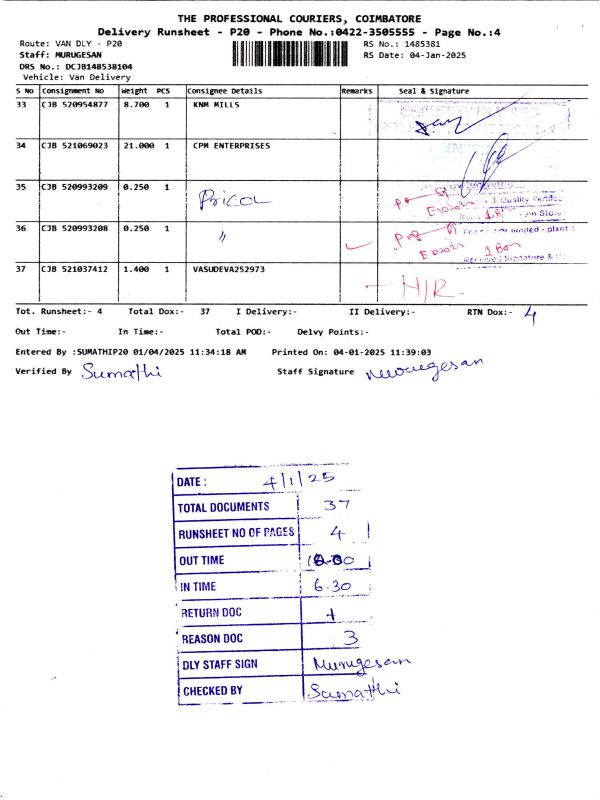 THE PROFESSIONAL COURIERS, COIMBATORE
Delivery Runsheet - P20 - Phone No.:0422-3505555 - Page No.:4
Route: VAN DLY - P20
RS No.: 1485381
Staff: MURUGESAN
RS Date: 04-Jan-2025
DRS No.: DCJB148538104
Vehicle: Van Delivery
S No Consignment No Weight PCS Consignee Details Remarks Seal & Signature
33 CJB 520954877 8.700 1 KNM MILLS
34 CJB 521069023 21.000 1 CPM ENTERPRISES
35 CJB 520993209 0.250 1 Pricol
Quality Verified
Stores
36 CJB 520993208 0.250 1 〃
limited - plant 1
1 Box
Received Signature &
37 CJB 521037412 1.400 1 VASUDEVA252973
H/R
Tot. Runsheet:- 4 Total Dox:- 37 I Delivery:- II Delivery:- RTN Dox:- 4
Out Time:- In Time:- Total POD:- Delvy Points:-
Entered By :SUMATHIP20 01/04/2025 11:34:18 AM Printed On: 04-01-2025 11:39:03
Verified By Sumathi Staff Signature Murugesan
DATE : 4/1/25
TOTAL DOCUMENTS 37
RUNSHEET NO OF PAGES 4
OUT TIME
IN TIME 6.30
RETURN DOC 4
REASON DOC 3
DLY STAFF SIGN Murugesan
CHECKED BY Sumathi